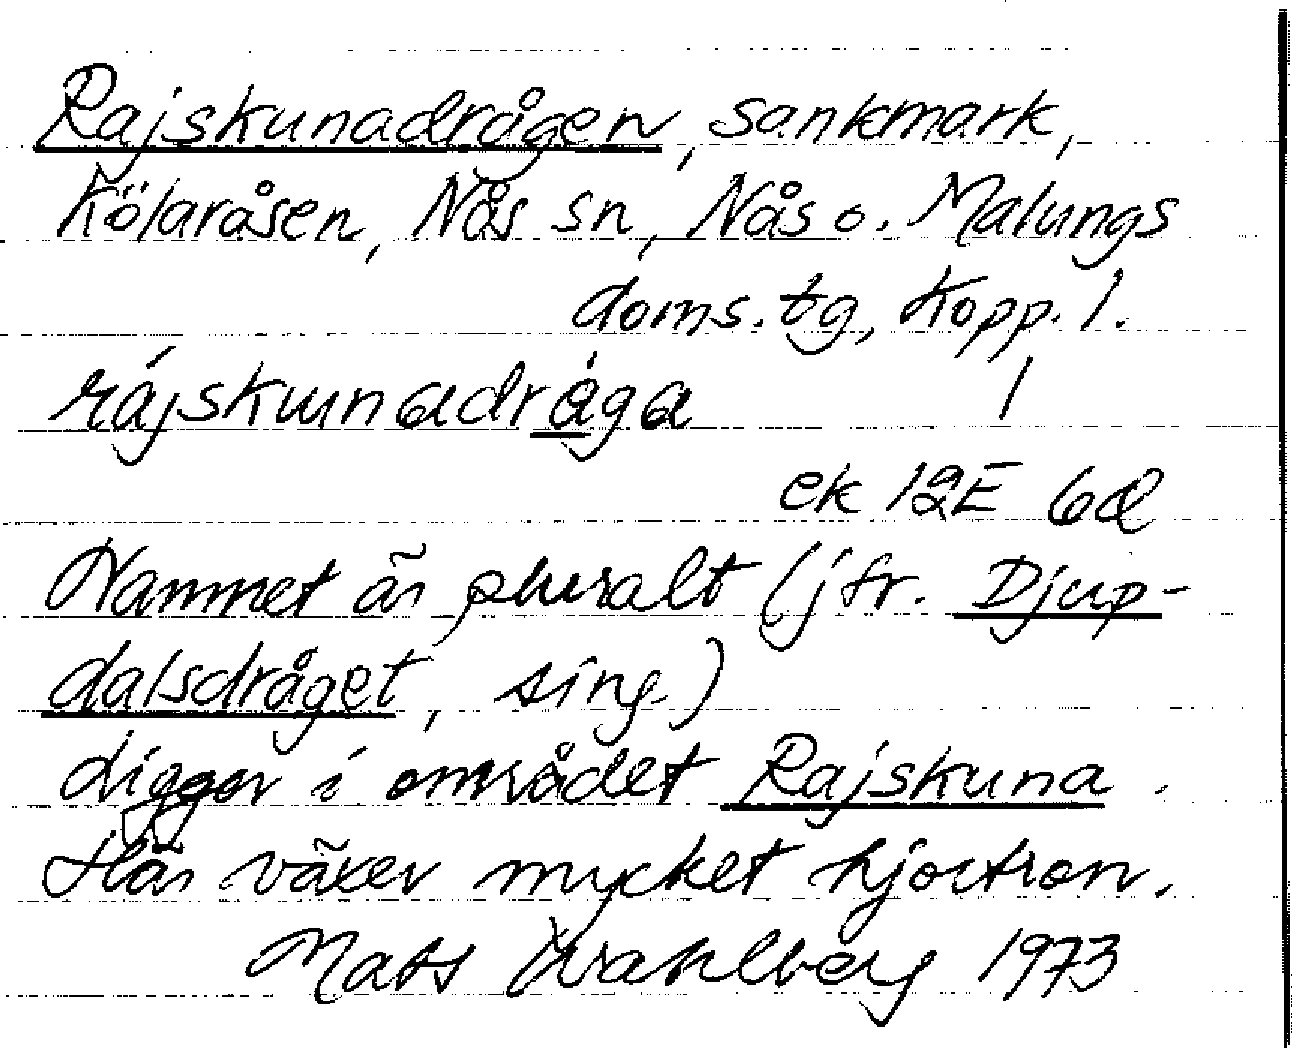 Rajskunadrågen, sankmark,
Kölaråsen, Nås sn, Nås o. Malungs
doms. tg, Kopp. l.
rájskunadrå̀ga 1
ek 12E 6d
Namnet är pluralt (jfr. Djup-
dalsdråget, sing.)
Ligger i området Rajskuna.
Här växer mycket hjortron.
Mats Wahlberg 1973